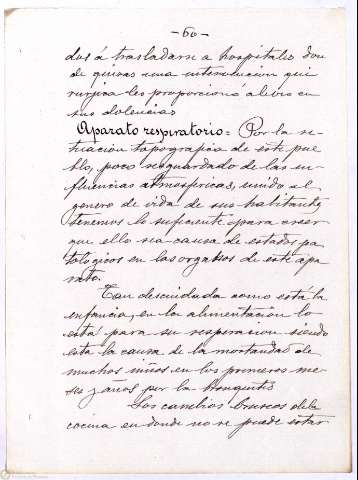 -60-
dos á trasladarse a hospitales don
de quizas una intervencion qui
rurjica les proporcionó alivio en
sus dolencias
Aparato respiratorio= Por la si-
tuación topografica de este pue
blo, poco resguardado de las in-
fluencias atmosfericas, unido al
genero de vida de sus habitantes
tenemos lo suficiente para creer
que ello sea causa de estados pa
tológicos en los organos de este apa
rato.
Tan descuidada como está la
infancia, en la alimentacion lo
está para su respiracion siendo
esta la causa de la mortandad de
muchos niños en los primeros me-
ses y años por la bronquitis
Los cambios bruscos de la
cocina en donde no se puede estar